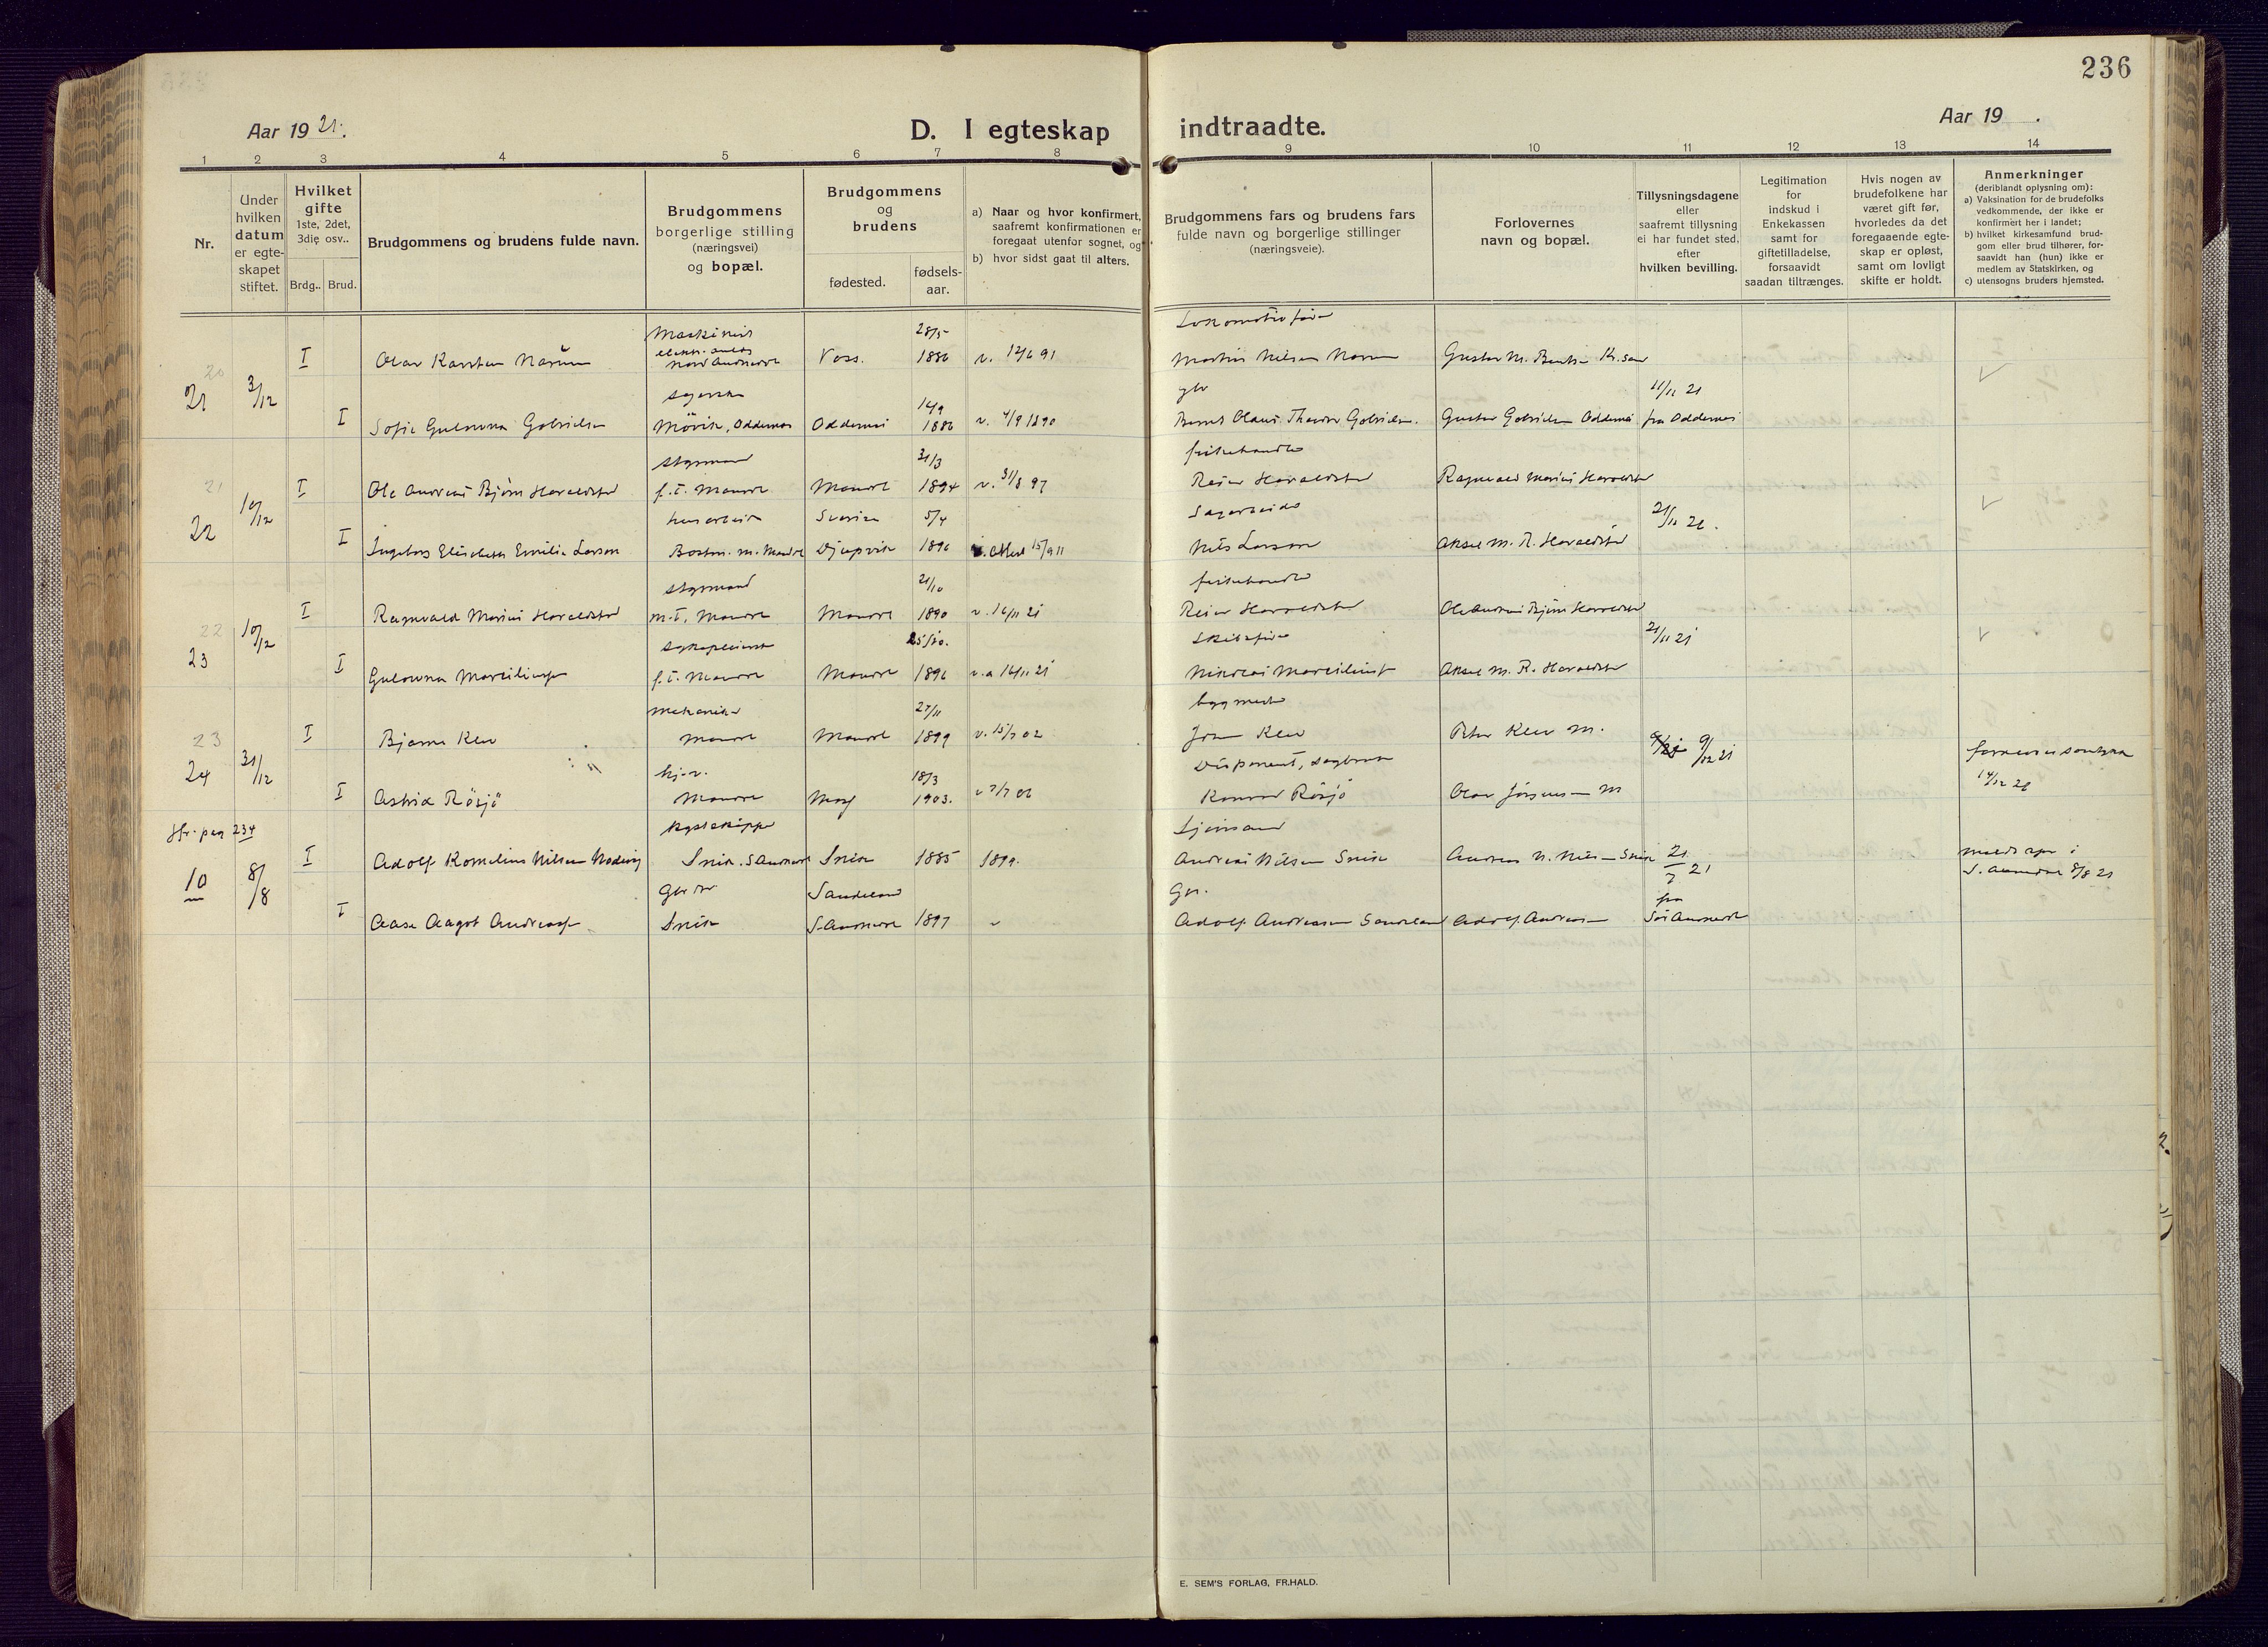 236
Aar 19 21.
D. I egteskap indtraadte.
Aar 19 .
1 2 3 4 5 6 7 8 9 10 11 12 13 14
Nr.
Under
hvilken
datum
er egte-
skapet
stiftet.
Hvilket
gifte
1ste, 2det,
3die osv..
Brdg.. Brud.
Brudgommens og brudens fulde navn.
Brudgommens
borgerlige stilling
(næringsvei)
og bopæl.
Brudgommens
og
brudens
fødested.
fødsels-
aar.
a) Naar og hvor konfirmert,
saafremt konfirmationen er
foregaat utenfor sognet, og
b) hvor sidst gaat til alters.
Brudgommens fars og brudens fars
fulde navn og borgerlige stillinger
(næringsveie).
Forlovernes
navn og bopæl.
Tillysningsdagene
eller
saafremt tillysning
ei har fundet sted,
efter
hvilken bevilling.
Legitimation
for
indskud i
Enkekassen
samt for
giftetilladelse,
forsaavidt
saadan tiltrænges.
Hvis nogen av
brudefolkene har
været gift før,
hvorledes da det
foregaaende egte-
skap er opløst,
samt om lovligt
skifte er holdt.
Anmerkninger
(deriblandt oplysning om):
a) Vaksination for de brudefolks
vedkommende, der ikke er
konfirmert her i landet;
b) hvilket kirkesamfund brud-
gom eller brud tilhører, for-
saavidt han (hun) ikke er
medlem av Statskirken, og
c) utensogns bruders hjemsted.
20
21 3/12 I Olav Karsten Narum Maskinist Voss. 28/5 1886 v. 12/6 91 Lokomotivfører Martin Nilsen Narum Gustav M. Kr.sand
I Sofie Gulowna Gabrielsen Møvik, Oddernes Oddernes 14/9 1886 v. 4/9 1890 gbr Olaus Theodor Gabrielsen. Gustav Gabrielsen Oddernes 11/11 21 fra Oddernes
21
22 10/12 I Ole Andreas Bjørn Haraldstad styrmand f.t. Mandal Mandal 31/3 1894 v. 31/8 97 fiskehandler Reier Haraldstad Ragnvald Marius Haraldstad
I Ingeborg Elisabeth Emilie Larson husarbeide Boston. m. Mandal Sverige Djupvik 5/4 1896 15/9 11 Sagarbeider Nils Larson Aksel M. R. Haraldstad 21/11 21.
22
23 10/12 I Ragnvald Marius Haraldstad styrmand m.t. Mandal Mandal 21/10 1890 v. 16/11 21 fiskehandler Reier Haraldstad Ole Andreas Bjørn Haraldstad
I Gulowna Marciliusen f.t. Mandal Mandal 25/10. 1896 v. a 16/11 21 Skibsfører Nikolai Marcilius Aksel M. R. Haraldstad 21/11 21
23
24 31/12 I Bjarne Klev Mekaniker Mandal Mandal 27/11 1899 v. 15/7 02 bygmester John Klev Peter Klev M. 9/12 21
I Astrid Rösjö hj. v. Mandal Moss 18/3 1903. v 7/7 06 Disponent, Konrad Rösjö Olav Jörgensen M 14/12 21
Jfr. pag 234
10 8/8 I Adolf Kornelius Nilsen Nodeng kystskipper Snik. S Audnedal Snik 1885 1899. Andreas Nilsen Snik Andreas N. Nilsen Snik 21/7 21 meldt i S. Audnedal 8/8 21
I Aase Aagot Andreasen Gbr dtr Snik Sandeland S. Audnedal 1897 Gbr. Adolf Andreasen Sandeland Adolf Andreasen fra Sör Audnedal
E. SEM'S FORLAG, FR.HALD.